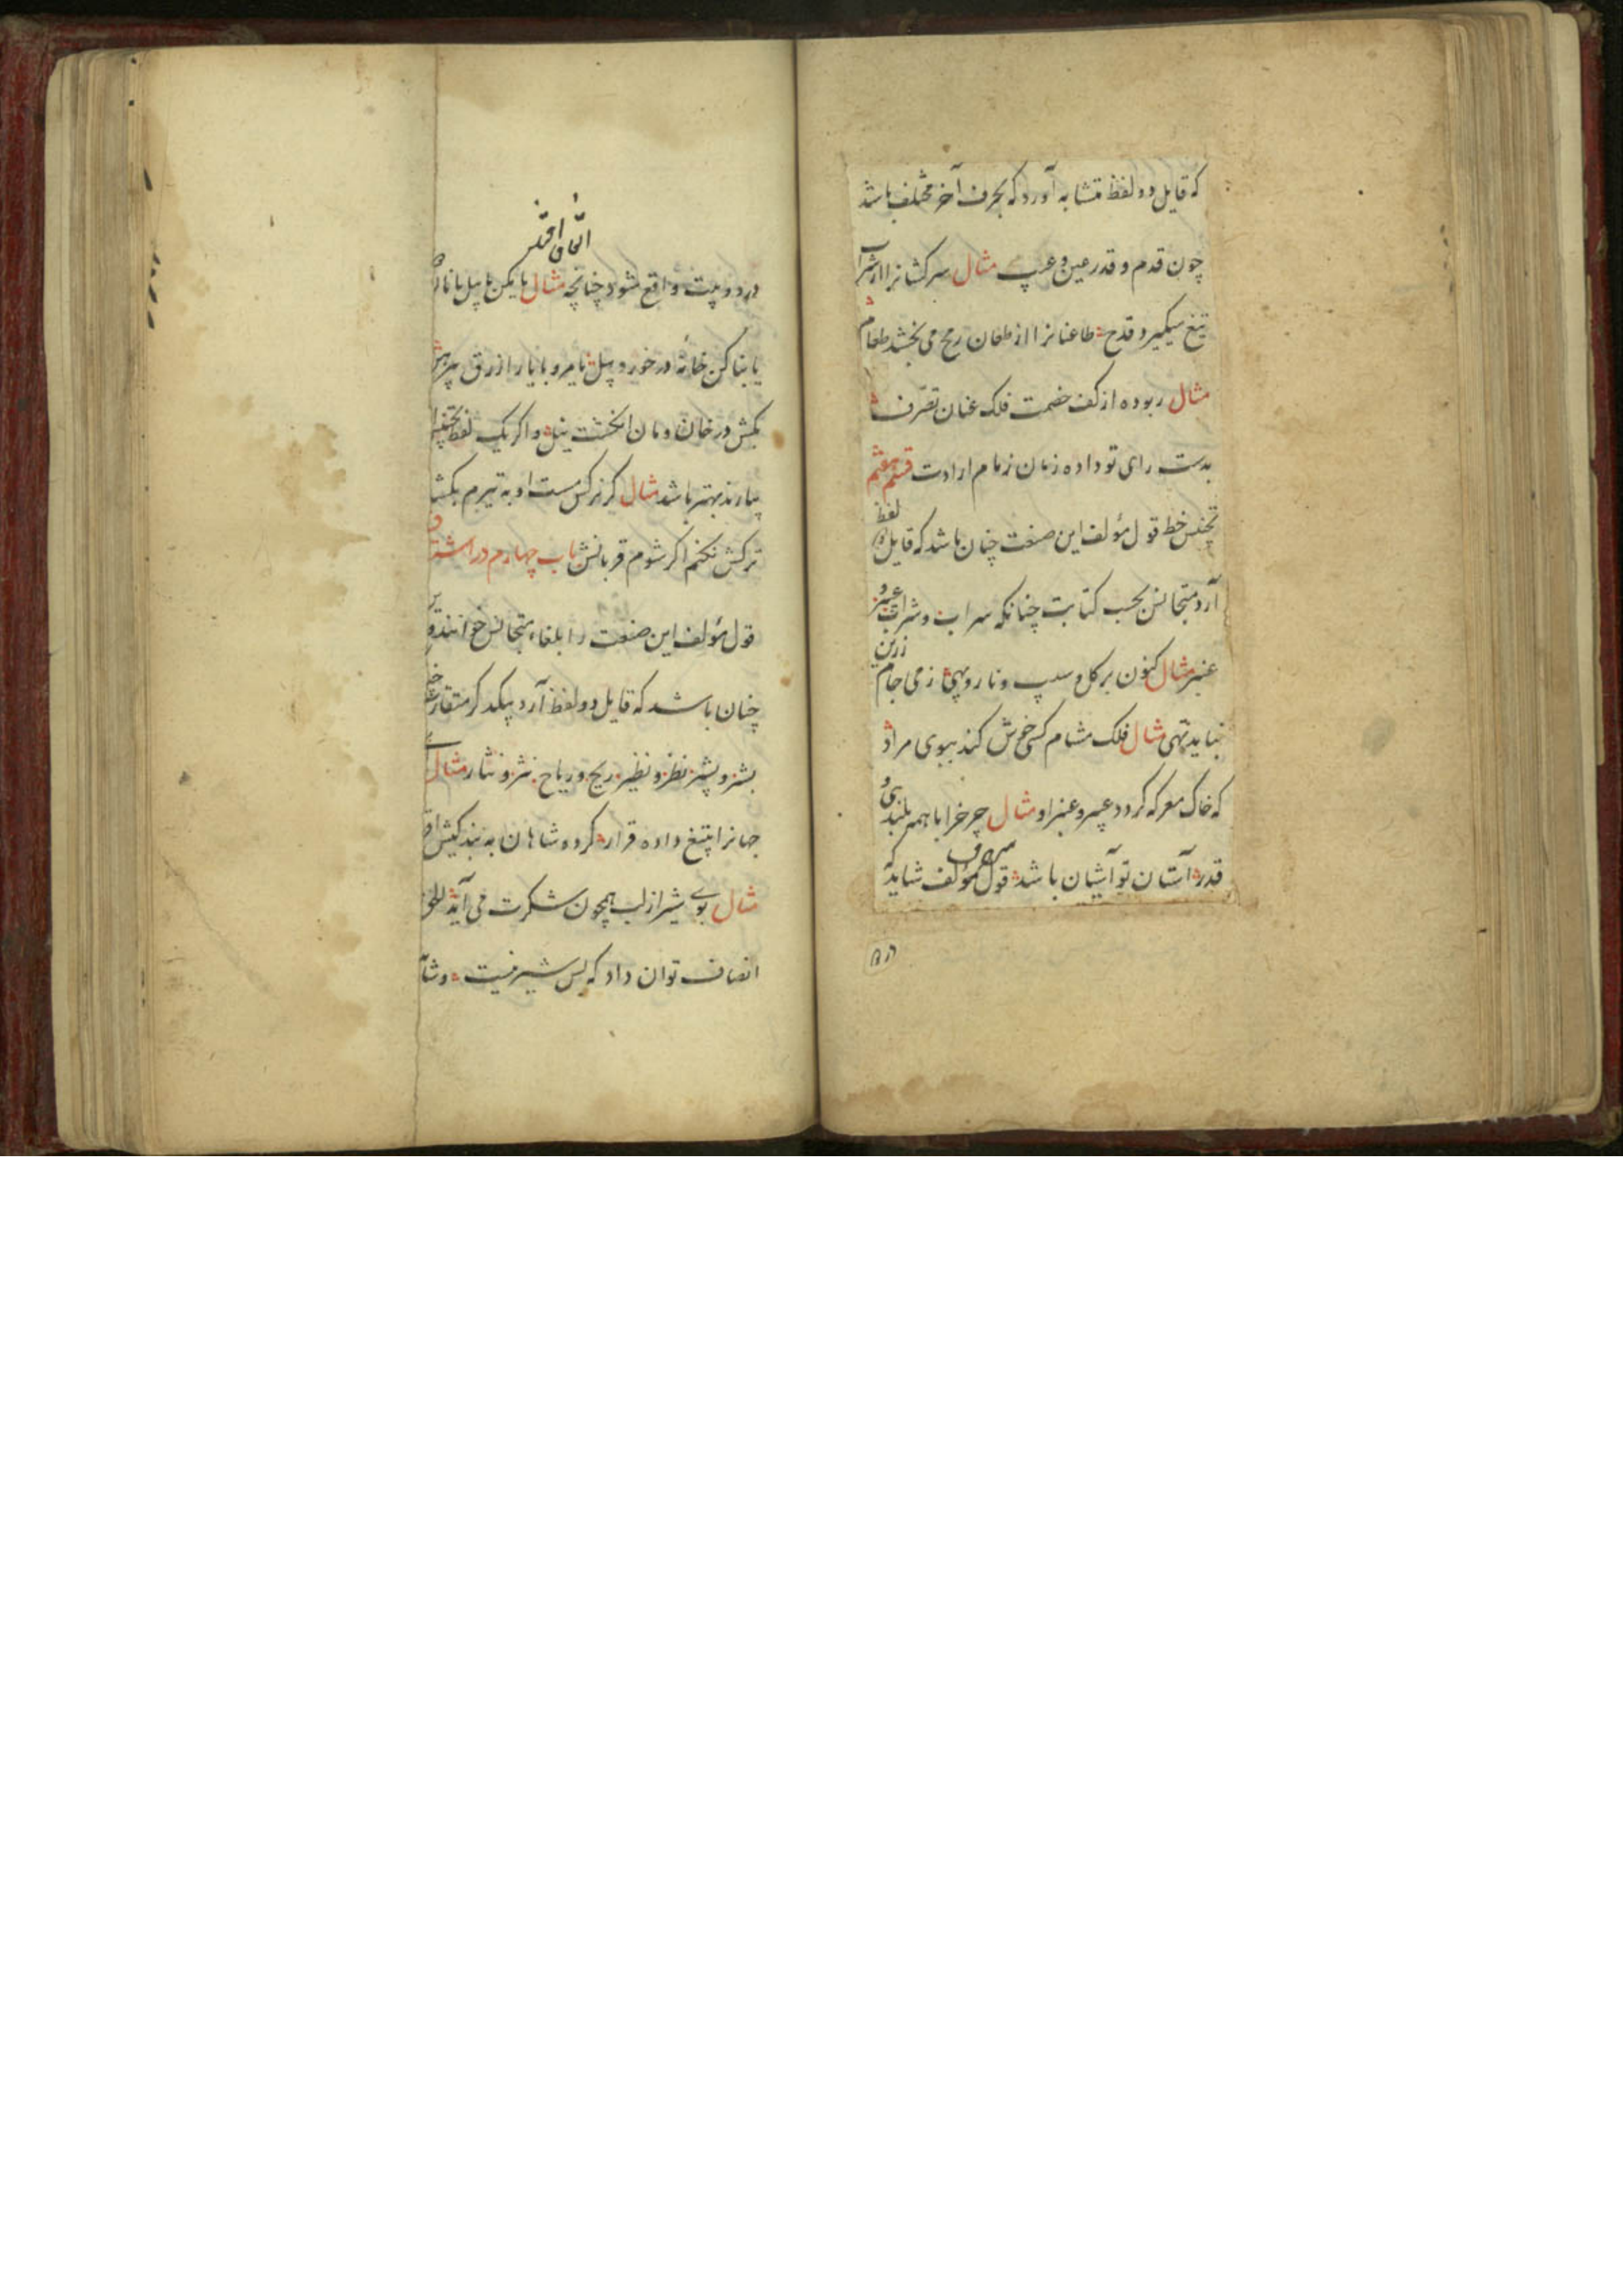 که قایل دو لفظ متشابه آورد که بحرف آخر مختلف باشد
چون قدم و قدر عین و عیب مثال سرکشانرا از شراب
تیغ میگیرد قدح طاعنانرا از طعان رمح می بخشد طعام
مثال ربوده از کف خصمت فلک عنان تصرف
بدست رای تو داده زمان زمام ارادت قسم هفتم
تجنیس خط قول مؤلف این صنعت چنان باشد که قایل دو لفظ
آرد متجانس بحسب کتابت چنانکه سراب و شراب عبیر و
عنبر مثال کنون بر کل و سیب و نار و بهی زمی جام زرین
نباید تهی مثال فلک مشام کسی خوش کند ببوی مراد
که خاک معرکه کردد عبیر و عنبر او مثال چرخ را با همه بلندی و
قدر آستان تو آشیان باشد قول مؤلف شاید که
مصرف
اتفاق افتد
در دو بیت واقع شود چنانچه مثال یا مکن با پیل بانان
یا بنا کن خانه در خورد پیل یا مرو با یار ازرق پیرهن
یا بکش در خان و مان انکشت نیل و اکر یک لفظ
بیارند بهتر باشد مثال کر نرکس مست او به تیرم بکشد
ترکش نکنم اکر شوم قربانش باب چهارم در اشتقاق
قول مؤلف این صنعت را بلغاء متجانس خوانند و
چنان باشد که قایل دو لفظ آرد بیکدکر متقارب
بشر و بشیر نظر و نظیر ریح و ریاح نثر و نثار مثال
جهانرا بتیغ داده قرار کرده شاهان به بندکیش اقرار
مثال بوی شیر از لب همچون شکرت می آید
انصاف توان داد که بس شیرینست